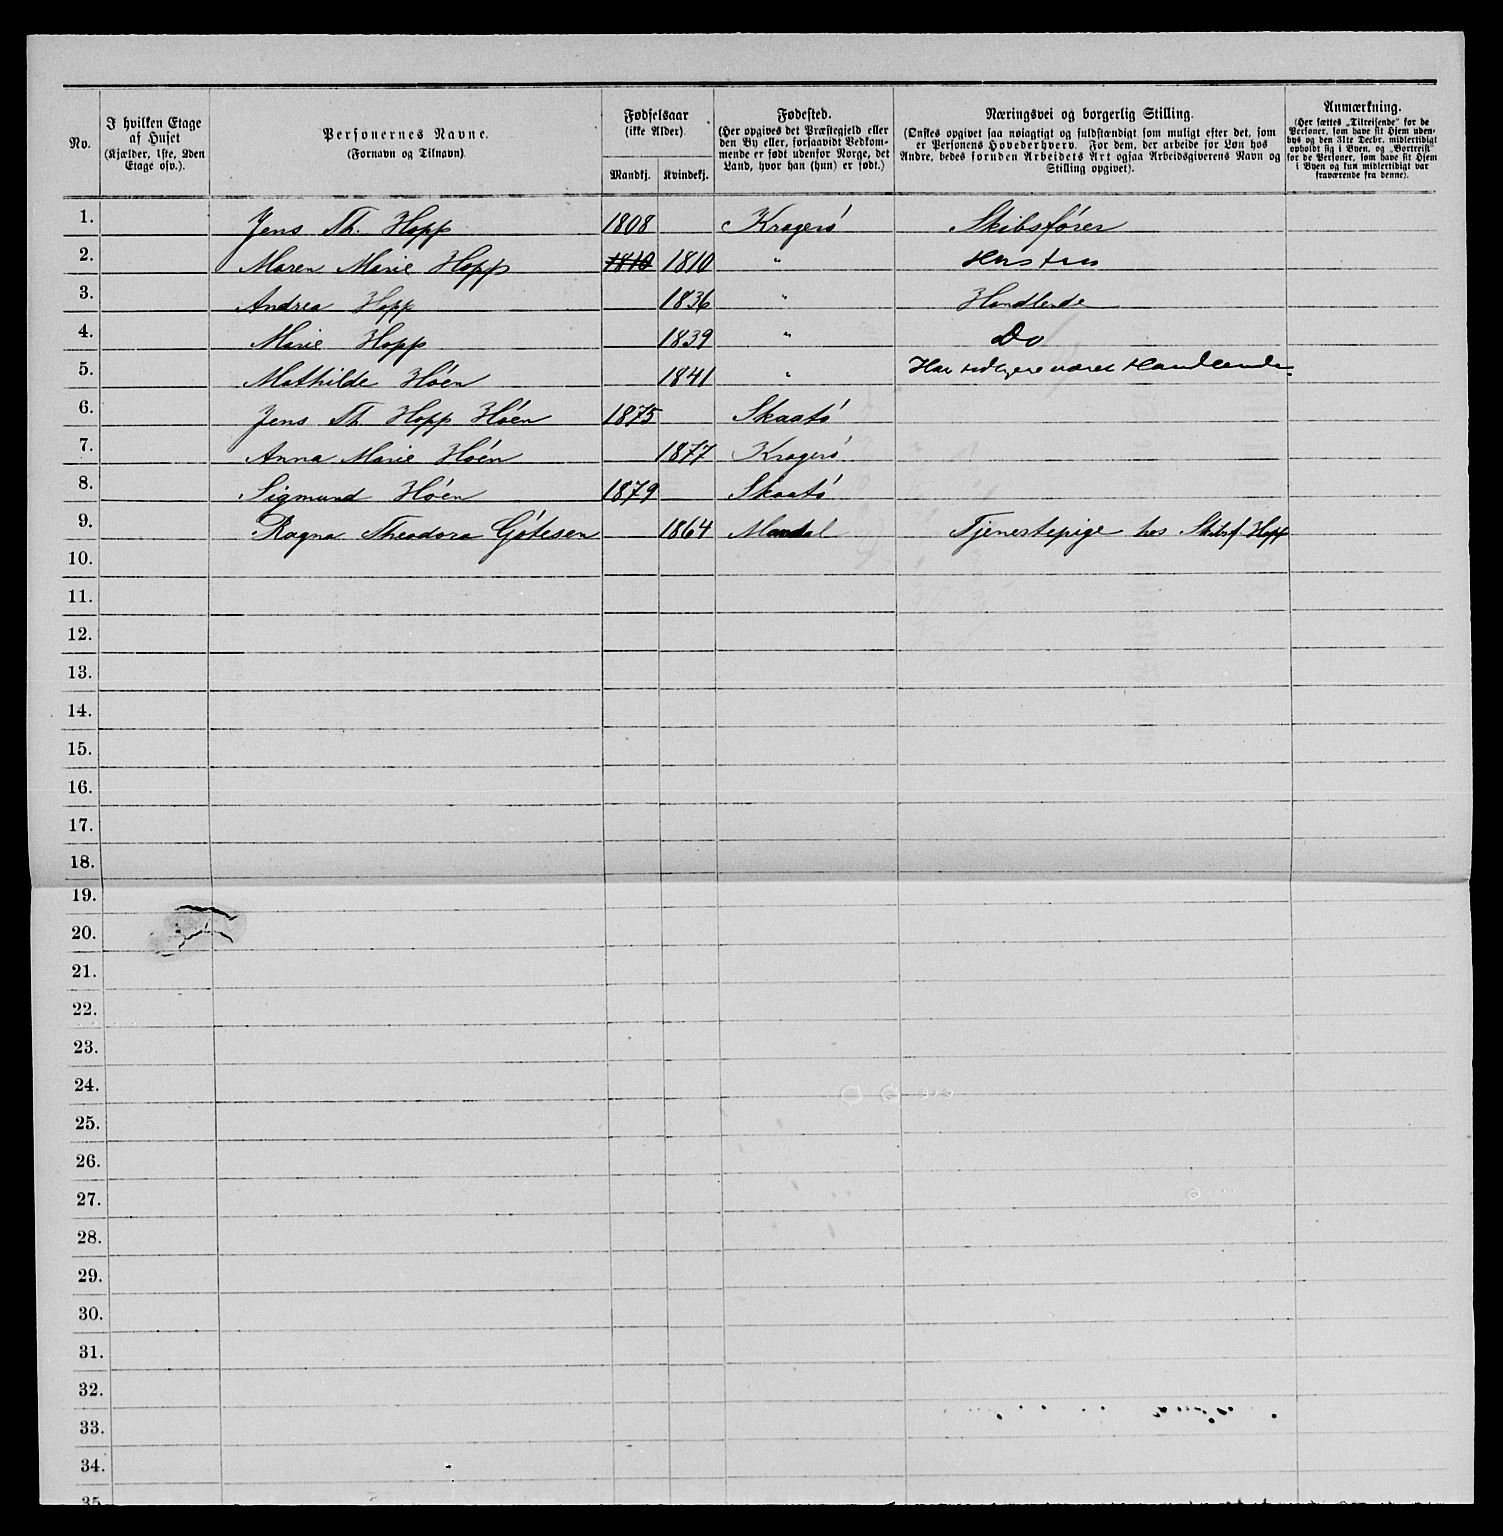 No.
I hvilken Etage af Huset (Kjælder, 1ste, 2den Etage osv.).
Personernes Navne. (Fornavn og Tilnavn)
Fødselsaar (ikke Alder)
Mandkj. Kvindekj.
Fødested. (Her opgives det Præstegjeld eller den By eller, forsaavidt Vedkommende er født udenfor Norge, det Land, hvor han (hun) er født.)
Næringsvei og borgerlig Stilling. (Ønskes opgivet saa nøiagtigt og fuldstændigt som muligt efter det, som er Personens Hovederhverv. For dem, der arbeide for Løn hos Andre, bedes foruden Arbeidets Art ogsaa Arbeidsgiverens Navn og Stilling opgivet).
Anmærkning. (Her sættes „Tilreisende" for de Personer, som have sit Hjem udenbys og den 31te Decbr. midlertidigt opholdt sig i Byen, og „Bortreist" for de Personer, som have sit Hjem i Byen og kun midlertidigt var fraværende fra denne).
1. Jens Th. Hopp 1808 Krageró Skibsfórer
2. Maren Marie Hopp 1810 1810 " Hustru
3. Andrea Hopp 1836 " Handlende
4. Marie Hopp 1839 " Do
5. Mathilde Hóen 1841 " Har tidligere været Handlende
6. Jens Th Hopp Hóen 1875 Skaató
7. Anna Marie Hóen 1877 Krageró
8. Sigmund Hóen 1879 Skaató
9. Ragna Theodora Gótesen 1864 Mandal Tjenestepige hos Skibsf. Hopp
10.
11.
12.
13.
14.
15.
16.
17.
18.
19.
20.
21.
22.
23.
24.
25.
26.
27.
28.
29.
30.
31.
32.
33.
34.
35